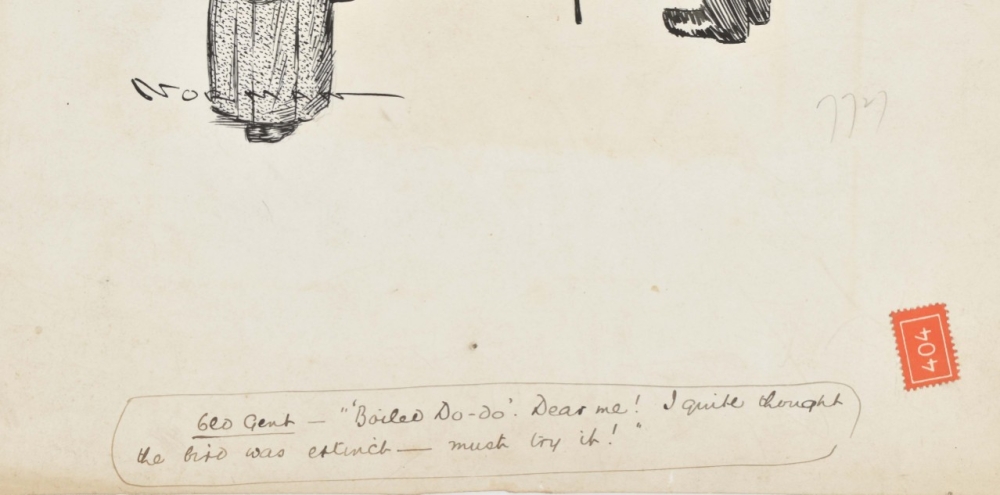 Norman
7727
404
Old Gent — "'Boiled Do-do'. Dear me! I quite thought
the bird was extinct — must try it!"